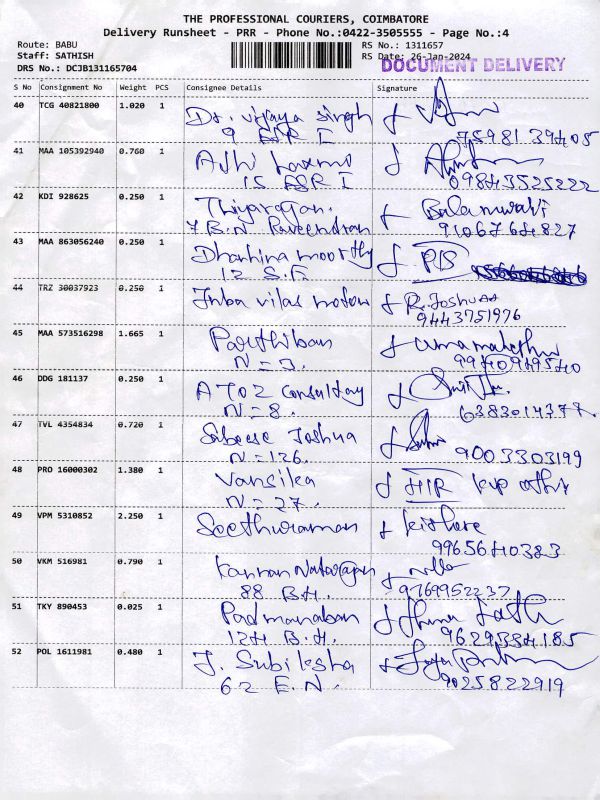 THE PROFESSIONAL COURIERS, COIMBATORE
Delivery Runsheet - PRR - Phone No.:0422-3505555 - Page No.:4
Route: BABU RS No.: 1311657
Staff: SATHISH RS Date: 26-Jan-2024
DRS No.: DCJB131165704 DOCUMENT DELIVERY
S No Consignment No Weight PCS Consignee Details Signature
40 TCG 40821800 1.020 1 Dr. Vijaya Singh
9 ESR I 75981 39405
41 MAA 105392940 0.760 1 Adhi Laxmi
15 ESR I 09843525222
42 KDI 928625 0.250 1 Thiyarajan. Balamurali
7 B.N Raveendran 9106764827
43 MAA 863056240 0.250 1 Dharhina moorthy
12 S.F.
44 TRZ 30037923 0.250 1 Inba vilas motors R. Joshua
9443751976
45 MAA 573516298 1.665 1 Parthiban umamaheshwari
N = 3.
46 DDG 181137 0.250 1 A TO Z Consultay
N = 8. 6383014377.
47 TVL 4354834 0.720 1 Subeese Joshua
N = 126. 9003303199
48 PRO 16000302 1.380 1 Vansika
N = 27.
49 VPM 5310852 2.250 1 Seethuraman kishore
9965640383
50 VKM 516981 0.790 1 Kannan Natarajan
88 B.H. 9769952237
51 TKY 890453 0.025 1 Padmanaban
124 B.H. 9629334185
52 POL 1611981 0.480 1 J. Subiksha
62 E.N. 9025822919